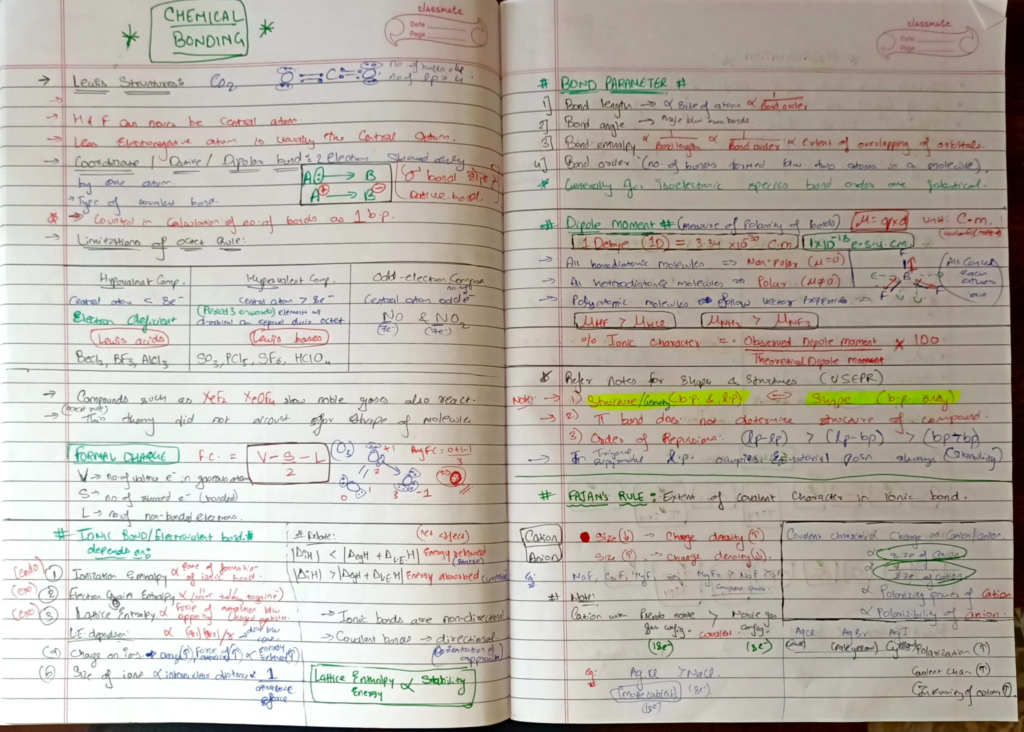 CHEMICAL
BONDING
classmate
Date
Page
→ Lewis Structures: CO2 O = C = O no. of bonds = 4
no of lp = 4
→ H & F can never be central atom.
→ Less Electronegative atom is usually the Central Atom.
→ Coordinate / Dative / Dipolar bond: 2 electron shared only
by one atom.
A → B
A⊕ → B⊖
→ Type of covalent bond.
→ Counted in Calculation of no. of bonds as 1 b.p.
→ Limitations of octet Rule:
Hypovalent Comp. Hypervalent Comp. Odd-electron Comp
Central atom < 8e⁻ Central atom > 8e⁻ Central atom odd e⁻
Electron deficient (Period 3 onwards) element
d-orbital can expand their octet
NO & NO2
(7e⁻) (7e⁻)
Lewis acids Lewis bases
BeCl2, BF3, AlCl3 SO3, PCl5, SF6, HClO4
→ Compounds such as XeF2 XeOF4 show noble gases also react.
→ This theory did not account for shape of molecules
(octet rule)
FORMAL CHARGE F.C. = V - S - L
2
(O3) +1 Avg F.C = 0+1-1
3
V → no. of valence e⁻ in gaseous atom
S → no of shared e⁻ (bonded)
L → no. of non-bonded electrons.
# IONIC BOND/Electrovalent bond #
depends on:
# Note: (net effect)
|ΔiH| < |ΔegH + ΔLEH| Energy released
|ΔiH| > |ΔegH + ΔLEH| Energy absorbed
(endo) ① Ionization Enthalpy ∝ ease of formation
of ionic bond.
(exo) ② Electron Gain Enthalpy
(exo) ③ Lattice Enthalpy ∝ force of attraction b/w
opposing charged particles
→ Ionic bonds are non-directional
→ Covalent bonds → directional
(orientation of approach)
LE depends on:
(a) Charge on ions
(b) Size of ions ∝ internuclear distance ∝ 1
attractive
force
Lattice Enthalpy ∝ Stability
Energy
classmate
Date
Page
# BOND PARAMETER #
1] Bond length → ∝ size of atom ∝ 1
Bond order
2] Bond angle → Angle b/w two bonds.
3] Bond enthalpy ∝ 1 ∝ 1 ∝ extent of overlapping of orbitals.
Bond length Bond order
4] Bond order (no. of bonds formed b/w two atoms in a molecule).
* Generally for isoelectronic species bond order are identical.
# Dipole moment # (measure of Polarity of bonds) μ = q×d unit: C·m.
1 Debye (1D) = 3.34 ×10⁻³⁰ C·m 1×10⁻¹⁸ e·s·u·cm
→ All homodiatomic molecules ⇒ Non-polar (μ=0)
→ All heterodiatomic molecules ⇒ Polar (μ≠0)
→ Polyatomic molecules follow vector
F
B
F F
All cancel
each
other
out
μHF > μHCl μNH3 > μNF3
% Ionic Character = Observed Dipole Moment × 100
Theoretical Dipole moment
* Refer Notes for shape & structures (VSEPR)
Note: → 1) Structure/Geometry (b.p & l.p) ⇔ Shape (b.p only)
→ 2) π bond does not determine structure of compound.
3) Order of Repulsions: (lp-lp) > (lp-bp) > (bp-bp)
→ In Trigonal bipyramidal l.p. occupies Equatorial posn always (Stability)
# FAJAN'S RULE: Extent of covalent Character in ionic bond.
Cation Size (↓) → Charge density (↑)
Anion Size (↑) → Charge density (↓)
Covalent character ∝ Charge on Cation/anion
∝ size of anion
∝ 1
size of cation
∝ Polarizing power of Cation
∝ Polarizability of anion.
# Note:
Cation with Pseudo noble > Noble gas
gas config → covalent config.
(18e⁻) (8e⁻)
AgCl AgBr AgI
Polarization (↑)
Covalent Char (↑)
Intensity of colour (↑)
Eg: AgCl > NaCl.
(more covalent) (8e⁻)
(18e⁻)